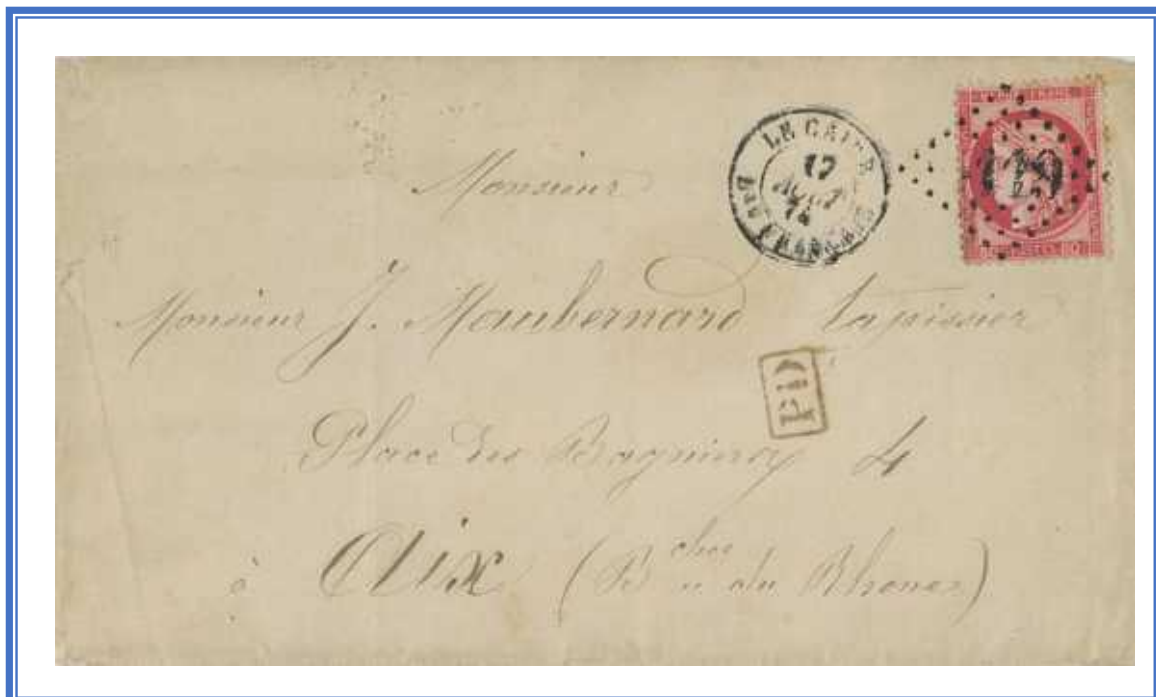 LE CAIRE
17
AOUT
74
Bau FRANÇAIS
80 80
Monsieur
Monsieur J. Maubernard tapissier
PD
Place des 4
à Aix (B ches du Rhone)